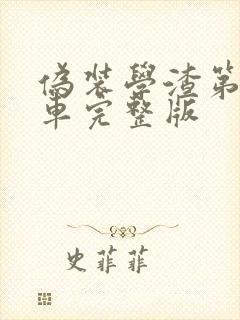 偽裝學渣第
車完整版
史菲菲